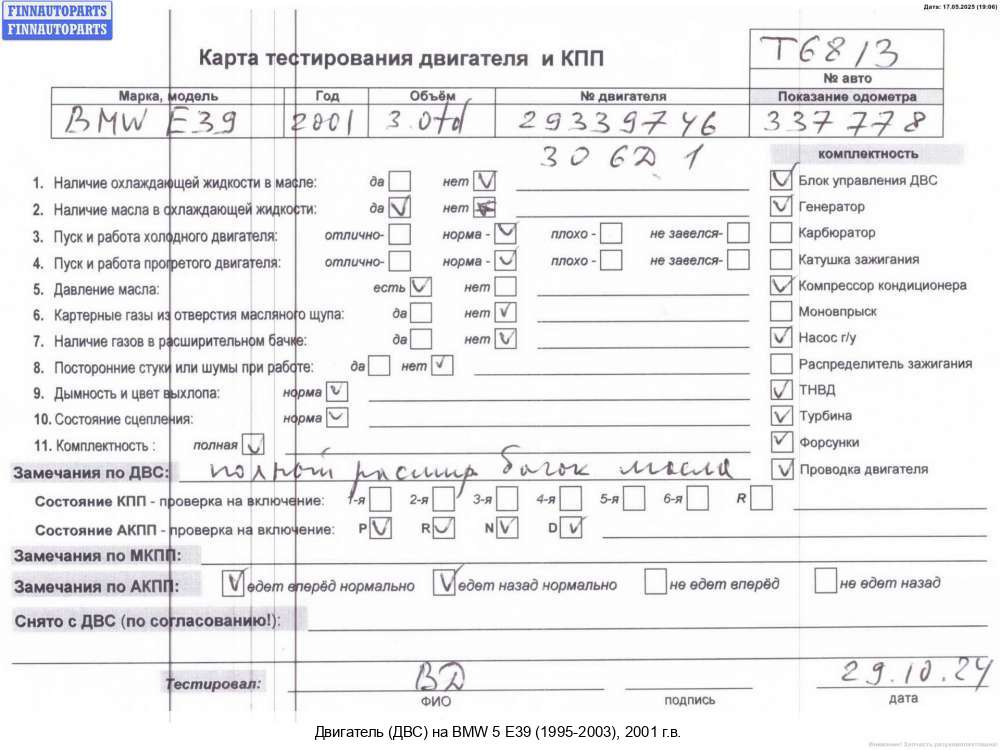 FINNAUTOPARTS
FINNAUTOPARTS
Дата: 17.05.2025 (19:06)
Карта тестирования двигателя и КПП
T6813
№ авто
Марка, модель Год Объём № двигателя Показание одометра
BMW E39 2001 3.0td 29339746 337 778
306D1
комплектность
1. Наличие охлаждающей жидкости в масле: да нет Блок управления ДВС
2. Наличие масла в охлаждающей жидкости: да нет Генератор
3. Пуск и работа холодного двигателя: отлично- норма - плохо - не завелся- Карбюратор
4. Пуск и работа прогретого двигателя: отлично- норма - плохо - не завелся- Катушка зажигания
5. Давление масла: есть нет Компрессор кондиционера
6. Картерные газы из отверстия масляного щупа: да нет Моновпрыск
7. Наличие газов в расширительном бачке: да нет Насос г/у
8. Посторонние стуки или шумы при работе: да нет Распределитель зажигания
9. Дымность и цвет выхлопа: норма ТНВД
10. Состояние сцепления: норма Турбина
11. Комплектность : полная Форсунки
Замечания по ДВС: полный расшир бачок масла Проводка двигателя
Состояние КПП - проверка на включение: 1-я 2-я 3-я 4-я 5-я 6-я R
Состояние АКПП - проверка на включение: P R N D
Замечания по МКПП:
Замечания по АКПП: едет вперёд нормально едет назад нормально не едет вперёд не едет назад
Снято с ДВС (по согласованию!):
Тестировал: ВД 29.10.24
ФИО подпись дата
Двигатель (ДВС) на BMW 5 E39 (1995-2003), 2001 г.в.
Внимание! Запчасть разукомплектована!